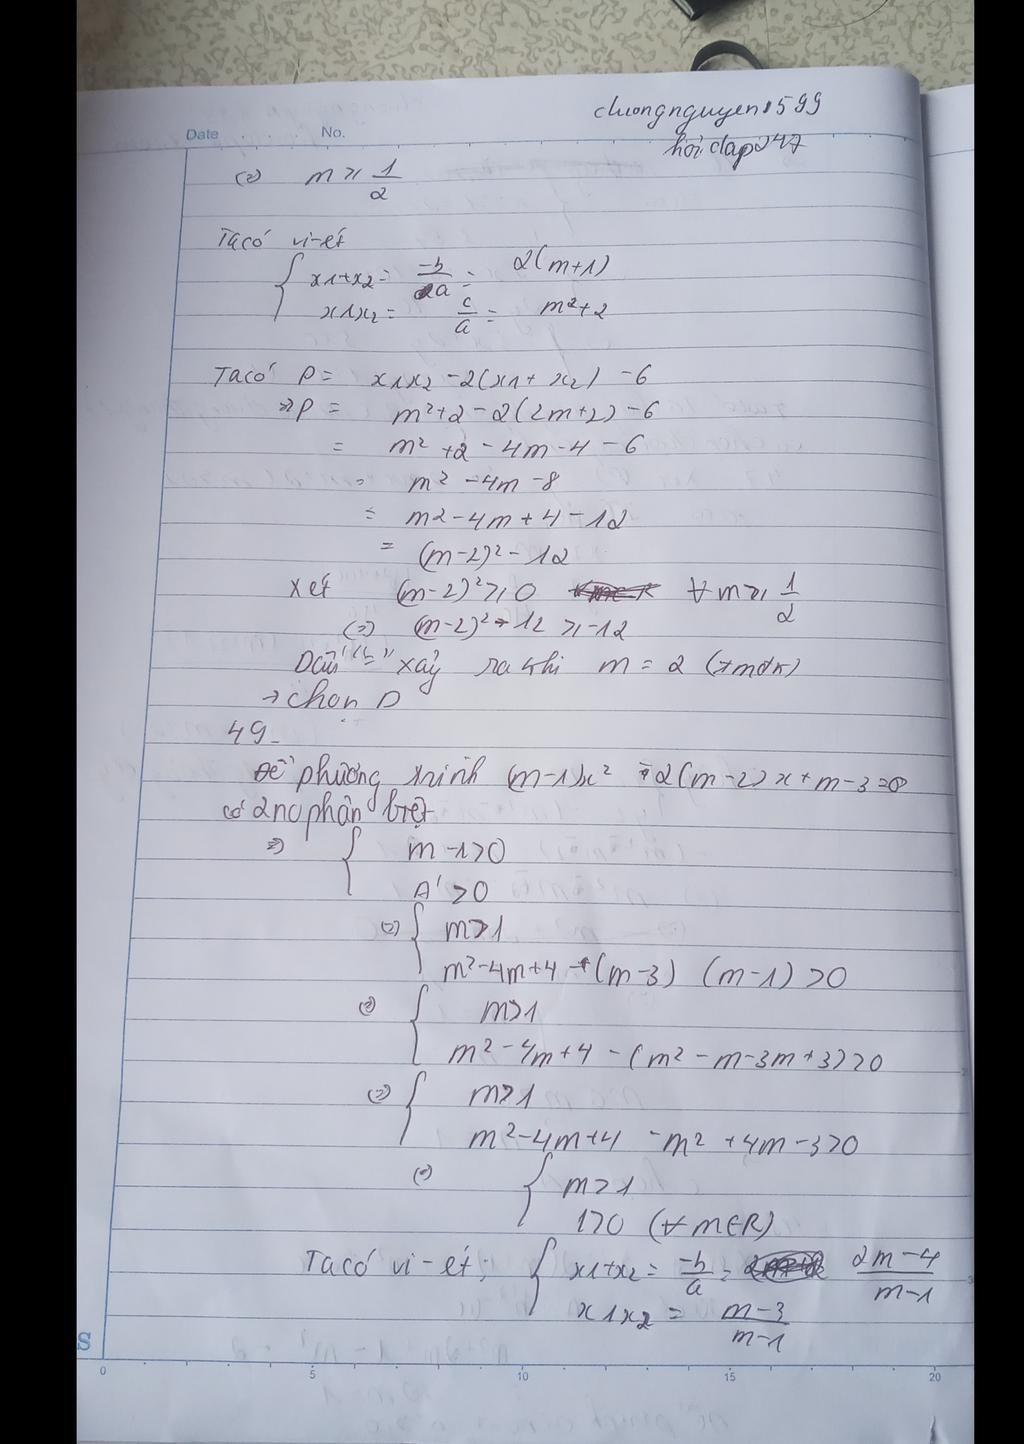 chuongnguyen1599
hoidap247
Date No.
(=) m ≥ 1/2
Ta có vi-ét
{ x1+x2 = -b/a = 2(m+1)
x1x2 = c/a = m²+2
Ta có P = x1x2 -2(x1+x2) -6
=> P = m²+2-2(2m+2)-6
= m² +2-4m-4-6
= m² -4m-8
= m2-4m+4-12
= (m-2)²-12
Xét (m-2)² ≥ 0 ∀ m ≥ 1/2
(=) (m-2)²-12 ≥ -12
Dấu "=" xảy ra khi m = 2 (tmđk)
→ chọn D
49.
Để phương trình (m-1)x² -2(m-2)x+m-3=0
có 2 no phân biệt
=> { m-1>0
Δ' >0
(=) { m>1
m²-4m+4 -(m-3) (m-1) >0
(=) { m>1
m²-4m+4 -(m²-m-3m+3)>0
(=) { m>1
m²-4m+4 -m² +4m-3>0
(=) { m>1
1>0 (∀ m∈R)
Ta có vi-ét: { x1+x2 = -b/a = 2m-4/m-1
x1x2 = m-3/m-1
S
0 5 10 15 20